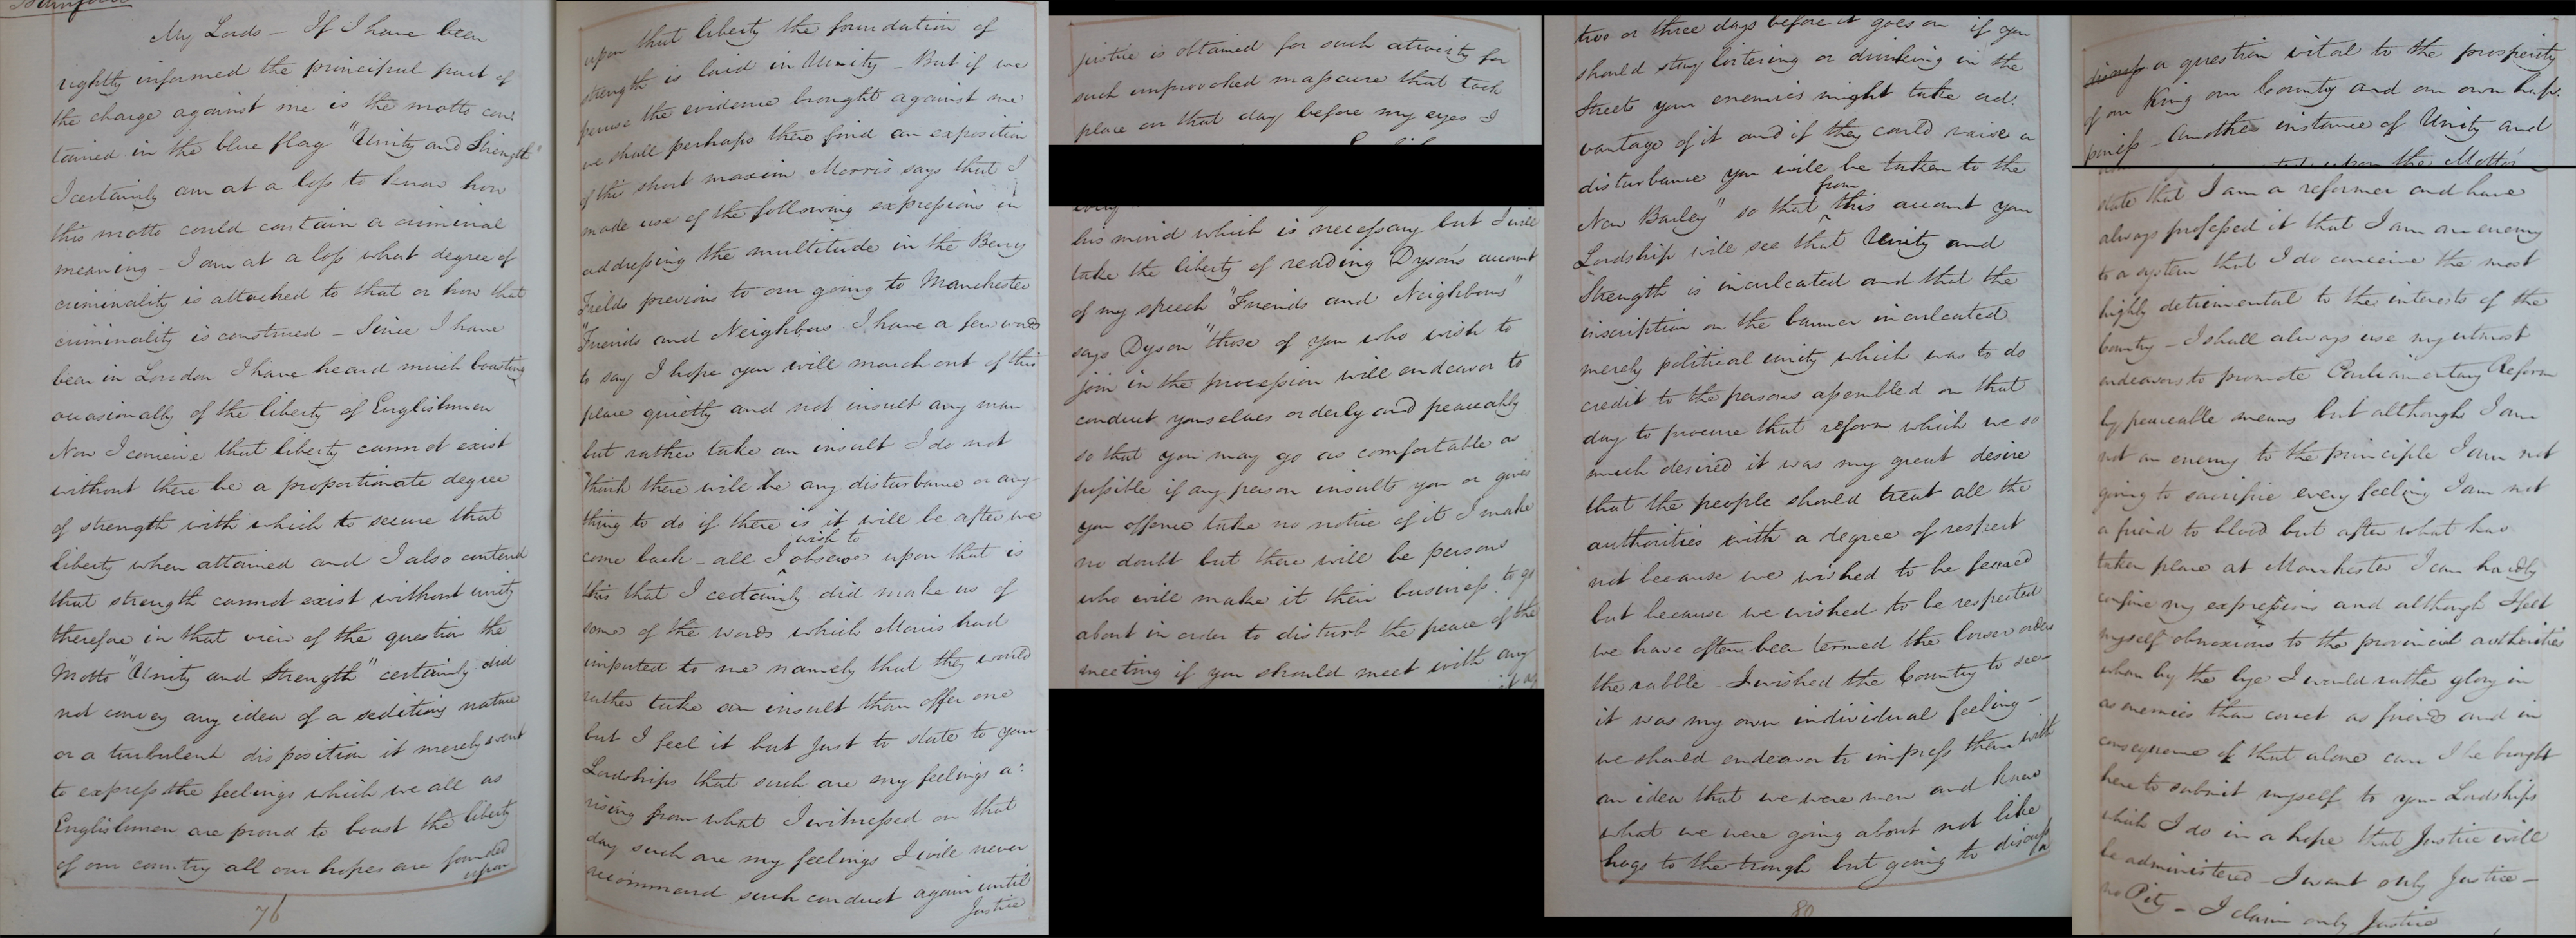 My Lords - If I have been
rightly informed the principal part of
the charge against me is the motto con:
tained in the blue flag "Unity and Strength"
I certainly am at a loss to know how
this motto could contain a criminal
meaning - I am at a loss what degree of
criminality is attached to that or how that
criminality is construed - Since I have
been in London I have heard much boasting
occasionally of the liberty of Englishmen
Now I conceive that liberty cannot exist
without there be a proportionate degree
of strength with which to secure that
liberty when attained and I also contend
that strength cannot exist without unity
therefore in that view of the question the
Motto "Unity and Strength" certainly did
not convey any idea of a seditious nature
or a turbulent disposition it merely went
to express the feelings which we all as
Englishmen are proud to boast the liberty
of our country all our hopes are founded
upon
76
upon that liberty the foundation of
strength is laid in Unity - But if we
peruse the evidence brought against me
we shall perhaps there find an exposition
of this short maxim Morris says that I
made use of the following expressions in
addressing the multitude in the Berry
Fields previous to our going to Manchester
"Friends and Neighbours I have a few words
to say I hope you will march out of this
place quietly and not insult any man
but rather take an insult I do not
think there will be any disturbance or any
thing to do if there is it will be after we
come back - all I wish to observe upon that is
this that I certainly did make us of
some of the words which Morris had
imputed to me namely that they would
rather take an insult than offer one
but I feel it but just to state to your
Lordships that such are my feelings a:
rising from what I witnessed on that
day such are my feelings I will never
recommend such conduct again until
Justice
justice is obtained for such atrocity for
such unprovoked massacre that took
place on that day before my eyes I
his mind which is necessary but I will
take the liberty of reading Dyson's account
of my speech "Friends and Neighbours"
says Dyson "those of you who wish to
join in the procession will endeavor to
conduct yourselves orderly and peaceably
so that you may go as comfortable as
possible if any person insults you or gives
you offence take no notice of it I make
no doubt but there will be persons
who will make it their business to go
about in order to disturb the peace of the
meeting if you should meet with any
two or three days before it goes on if you
should stay loitering or drinking in the
Streets your enemies might take ad:
vantage of it and if they could raise a
disturbance you will be taken to the
New Bailey" so that from this account your
Lordship will see that Unity and
Strength is inculcated and that the
inscription on the banner inculcated
merely political unity which was to do
credit to the persons assembled on that
day to procure that reform which we so
much desired it was my great desire
that the people should treat all the
authorities with a degree of respect
not because we wished to be feared
but because we wished to be respected
we have often been termed the lower orders
the rabble - I wished the Country to see
it was my own individual feeling -
we should endeavor to impress them with
an idea that we were men and knew
what we were going about not like
hogs to the trough but going to discuss
a
80
discuss a question vital to the prosperity
of our King our Country and our own hap:
piness - another instance of Unity and
upon the Motto
state that I am a reformer and have
always professed it that I am an enemy
to a system that I do conceive the most
highly detrimental to the interests of the
Country - I shall always use my utmost
endeavors to promote Parliamentary Reform
by peaceable means but although I am
not an enemy to the principle I am not
going to sacrifice every feeling I am not
a friend to blood but after what has
taken place at Manchester I can hardly
confine my expressions and although I feel
myself obnoxious to the provincial authorities
whom by the bye I would rather glory in
as enemies than covet as friends and in
consequence of that alone can I be brought
here to submit myself to your Lordships
which I do in a hope that Justice will
be administered - I want only Justice -
no Pity - I claim only Justice